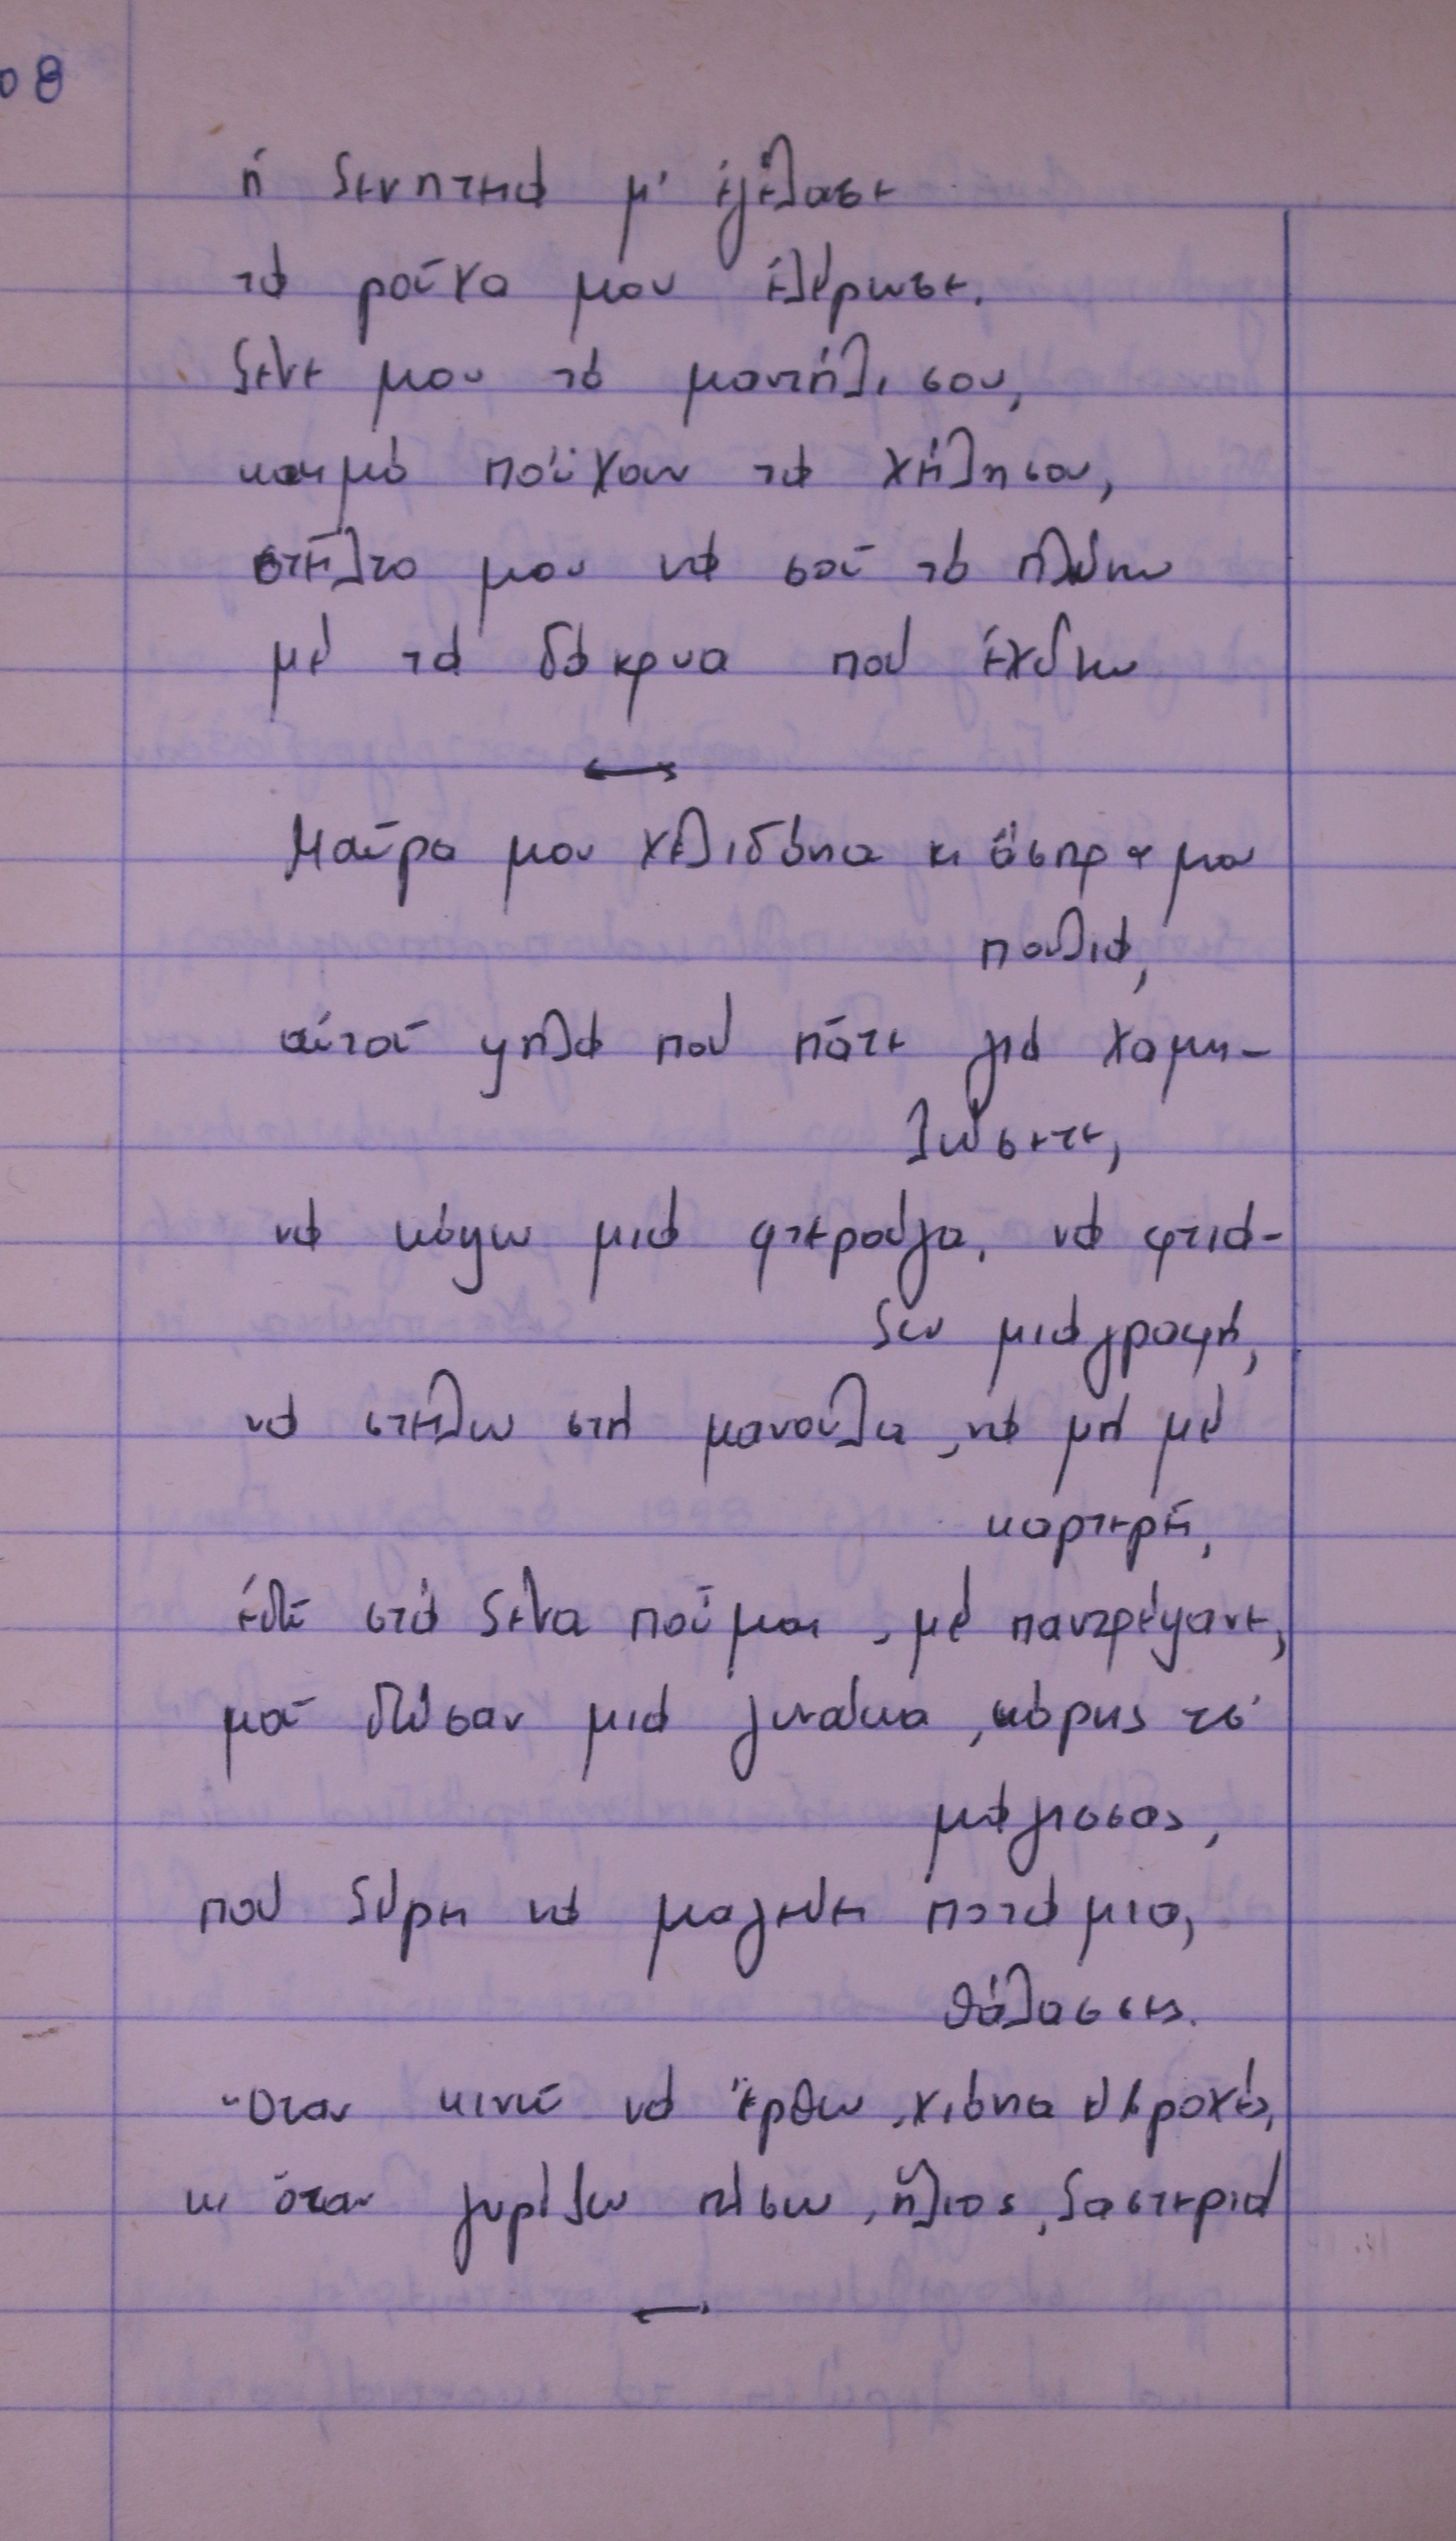 08
ἡ ξενητειά μ' ἐγέλασε
τά ροῦχα μου ἐλέρωσε.
Ξένε μου τό μαντήλι σου,
καϋμό πού̈χουν τά χείλη σου,
στεῖλτο μου νά σοῦ τό πλύνω
μέ τά δάκρυα πού ἐχύνω
Μαῦρα μου χελιδόνια κι ἄσπρα μου
πουλιά,
αὐτοῦ ψηλά πού πάτε γιά χαμη-
λώσετε,
νά κόψω μιά φτερούγα, νά φτιά-
ξω μιά γραφή,
νά στείλω στή μανούλα, νά μή μέ
καρτερῆ,
ἐδῶ στά ξένα ποὖμαι, μέ παντρέψανε,
μοῦ δῶσαν μιά γυναῖκα, κόρης τσ'
μάγισσας,
πού ξύρει νά μαγεύει ποτάμια,
θάλασσες.
Ὅταν κινῶ νά ἔρθω, χιόνια βροχές,
κι ὅταν γυρίζω πίσω, ἥλιος, ξαστεριά